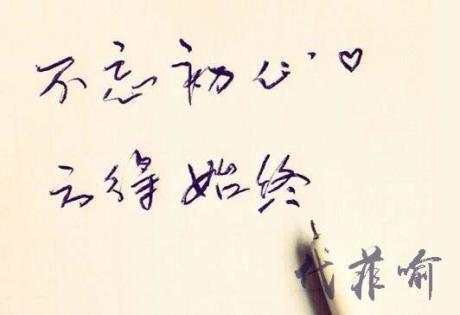 不忘初心
方得始终
代菲喻